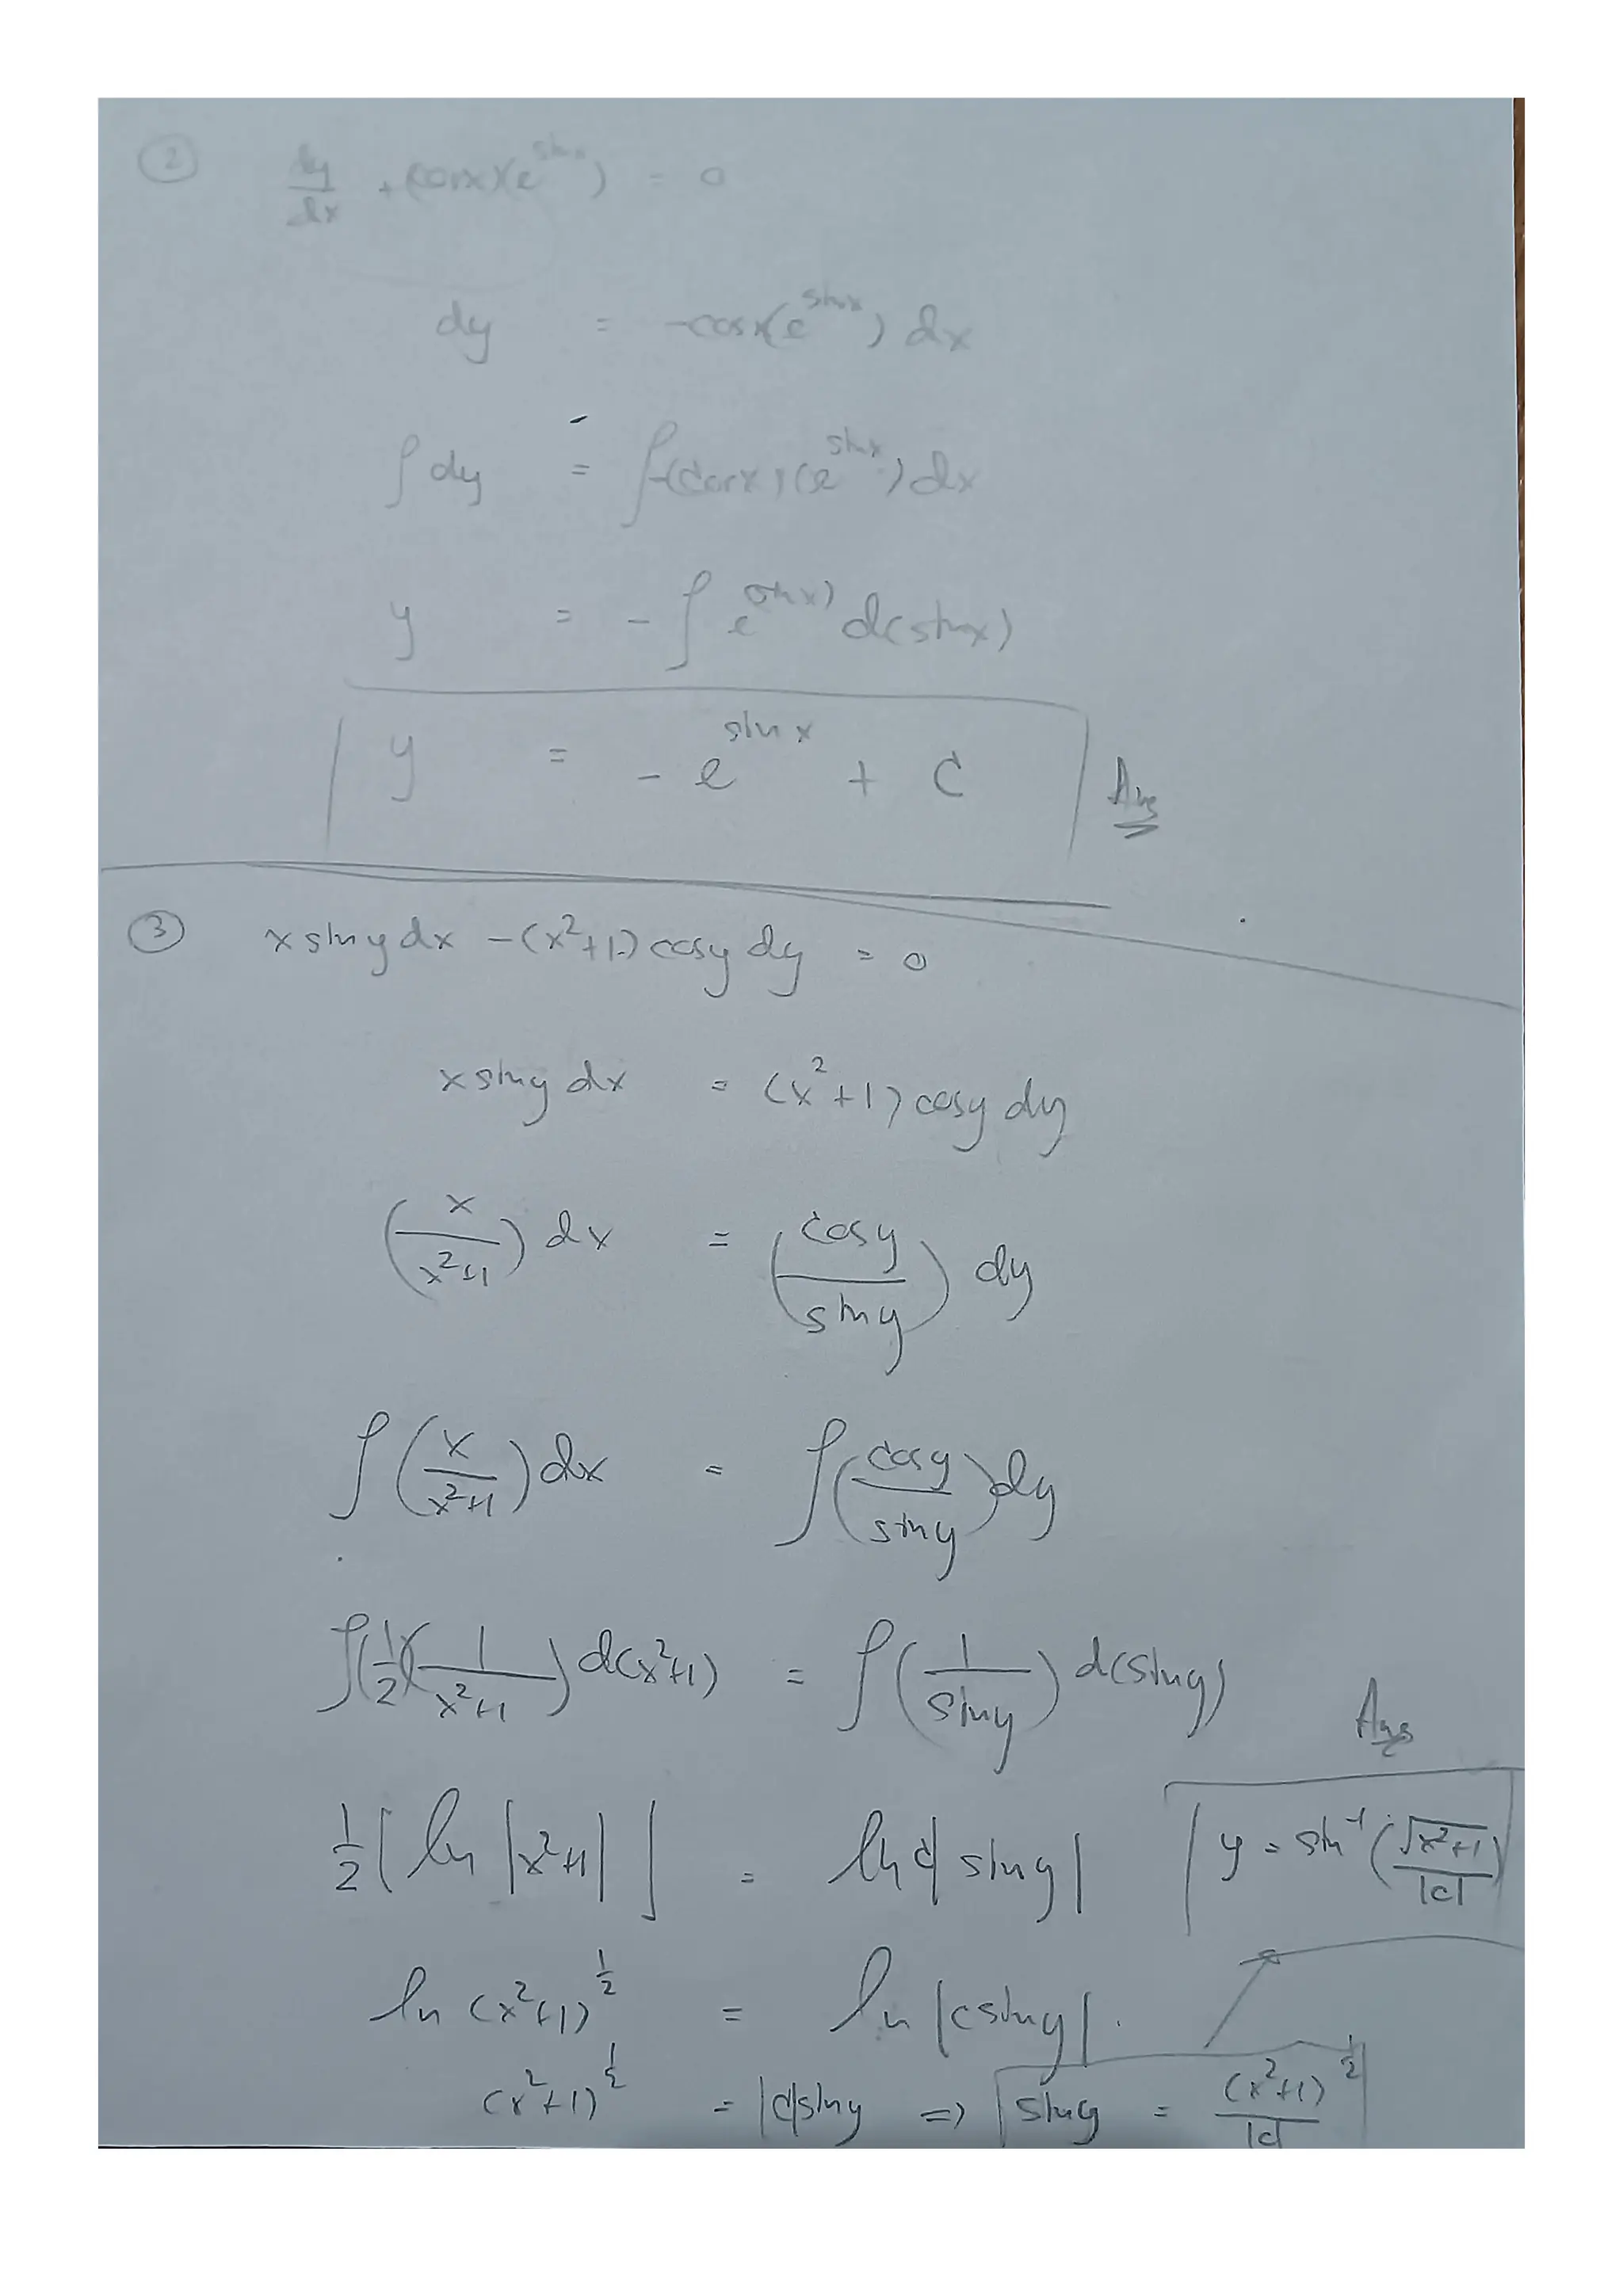 ② dy/dx + (cosx)(e^sinx) = 0
dy = -cosx(e^sinx) dx
∫dy = ∫-(cosx)(e^sinx)dx
y = -∫e^(sinx) d(sinx)
y = -e^sinx + C Ans
③ x siny dx - (x²+1) cosy dy = 0
x siny dx = (x²+1) cosy dy
(x/(x²+1)) dx = (cosy/siny) dy
∫(x/(x²+1)) dx = ∫(cosy/siny) dy
∫(1/2)(1/(x²+1)) d(x²+1) = ∫(1/siny) d(siny)
Ans
1/2[ln|x²+1|] = ln c|siny|
y = sin⁻¹(√(x²+1)/|c|)
ln (x²+1)^½ = ln|csiny|.
(x²+1)^½ = |c|siny => siny = (x²+1)^½/|c|